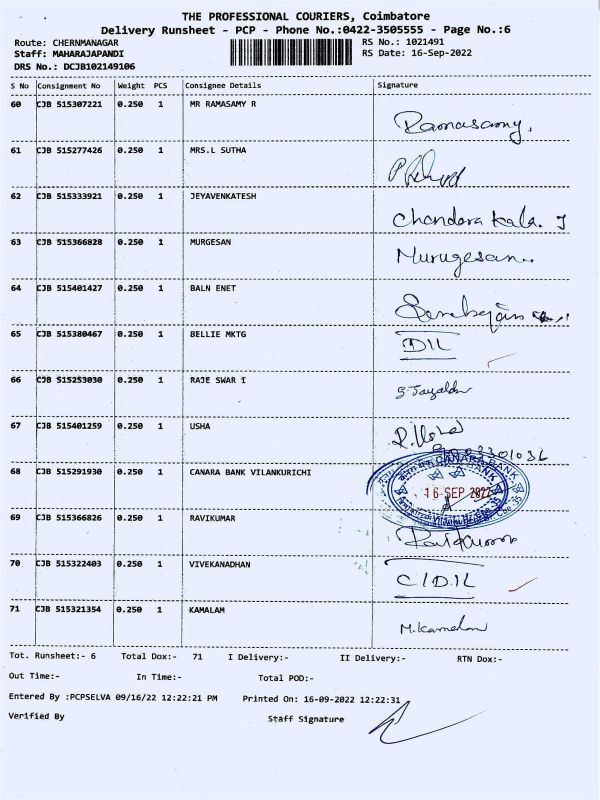 THE PROFESSIONAL COURIERS, Coimbatore
Delivery Runsheet - PCP - Phone No.:0422-3505555 - Page No.:6
Route: CHERNMANAGAR
RS No.: 1021491
Staff: MAHARAJAPANDI
RS Date: 16-Sep-2022
DRS No.: DCJB102149106
S No Consignment No Weight PCS Consignee Details Signature
60 CJB 515307221 0.250 1 MR RAMASAMY R
Ramasamy.
61 CJB 515277426 0.250 1 MRS.L SUTHA
62 CJB 515333921 0.250 1 JEYAVENKATESH
Chandara kala. J
63 CJB 515366828 0.250 1 MURGESAN
Murugesan..
64 CJB 515401427 0.250 1 BALN ENET
65 CJB 515380467 0.250 1 BELLIE MKTG
DIL
66 CJB 515253030 0.250 1 RAJE SWAR I
67 CJB 515401259 0.250 1 USHA
R.Usha
68 CJB 515291930 0.250 1 CANARA BANK VILANKURICHI
CANARA BANK
16 SEP 2022
69 CJB 515366826 0.250 1 RAVIKUMAR
70 CJB 515322403 0.250 1 VIVEKANADHAN
C/DIL
71 CJB 515321354 0.250 1 KAMALAM
M.Kamalam
Tot. Runsheet:- 6 Total Dox:- 71 I Delivery:- II Delivery:- RTN Dox:-
Out Time:- In Time:- Total POD:-
Entered By :PCPSELVA 09/16/22 12:22:21 PM Printed On: 16-09-2022 12:22:31
Verified By Staff Signature